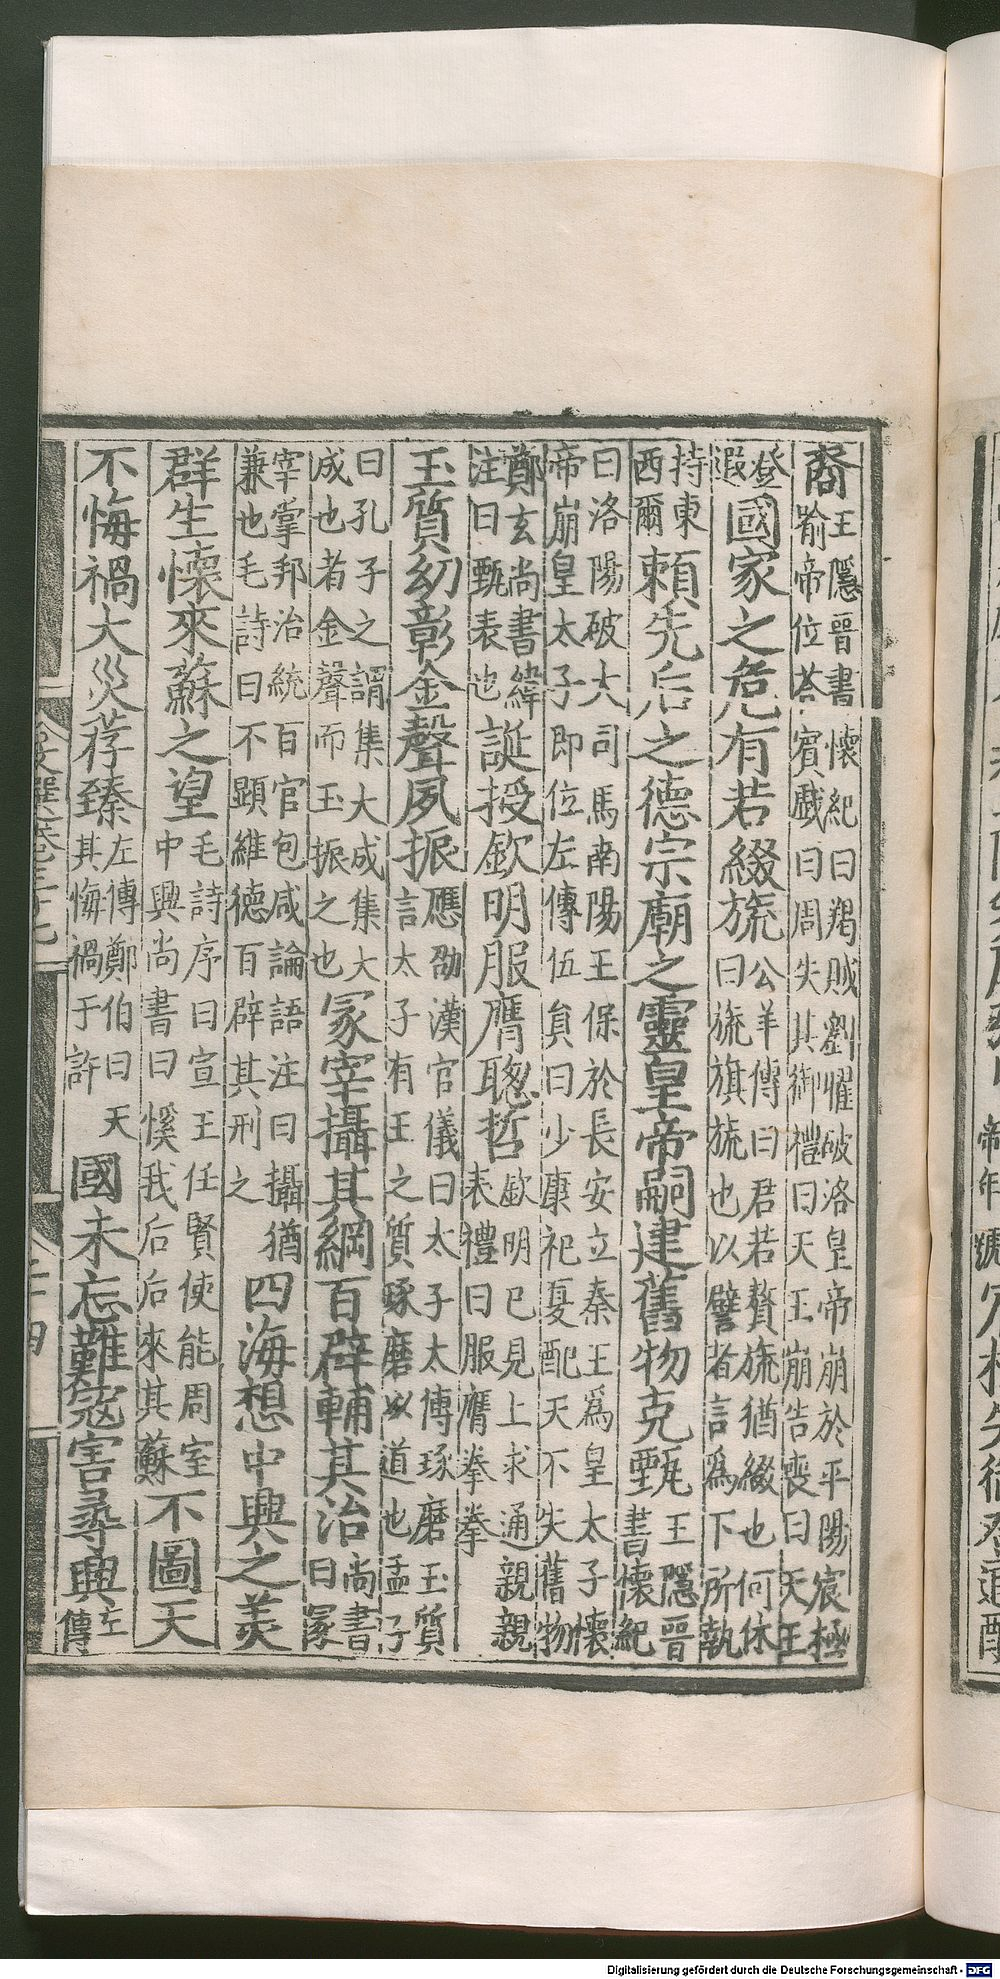 裔王隱晉書懷紀曰羯賊劉曜破洛皇帝崩於平陽宸極喻帝位荅賓戲曰周失其御禮曰天王崩告喪曰天王
登遐國家之危有若綴旒公羊傳曰君若贅旒猶綴也何休曰旒旗旒也以譬者言爲下所執
持東西爾賴先后之德宗廟之靈皇帝嗣建舊物克甄王隱晉書懷紀
曰洛陽破大司馬南陽王保於長安立秦王爲皇太子懷帝崩皇太子即位左傳伍員曰少康祀夏配天不失舊物
鄭玄尚書緯注曰甄表也誕授欽明服膺聰哲欽明已見上求通親親表禮曰服膺拳拳
玉質幼彰金聲夙振應劭漢官儀曰太子太傅琢磨玉質言太子有玉之質琢磨以道也孟子
曰孔子之謂集大成集大成也者金聲而玉振之也冢宰攝其綱百辟輔其治尚書曰冢
宰掌邦治統百官包咸論語注曰攝猶兼也毛詩曰不顯維德百辟其刑之四海想中興之美
群生懷來蘇之望毛詩序曰宣王任賢使能周室中興尚書曰徯我后后來其蘇不圖天
不悔禍大災荐臻左傳鄭伯曰天其悔禍于許國未忘難寇害尋興左傳
Digitalisierung gefördert durch die Deutsche Forschungsgemeinschaft - DFG